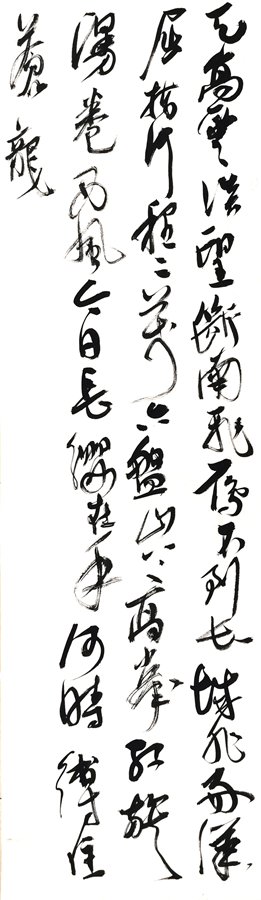 天高雲淡望斷南飛雁不到長城非好漢
屈指行程二萬六盤山上高峰紅旗
漫卷西風今日長纓在手何時縛住
蒼龍